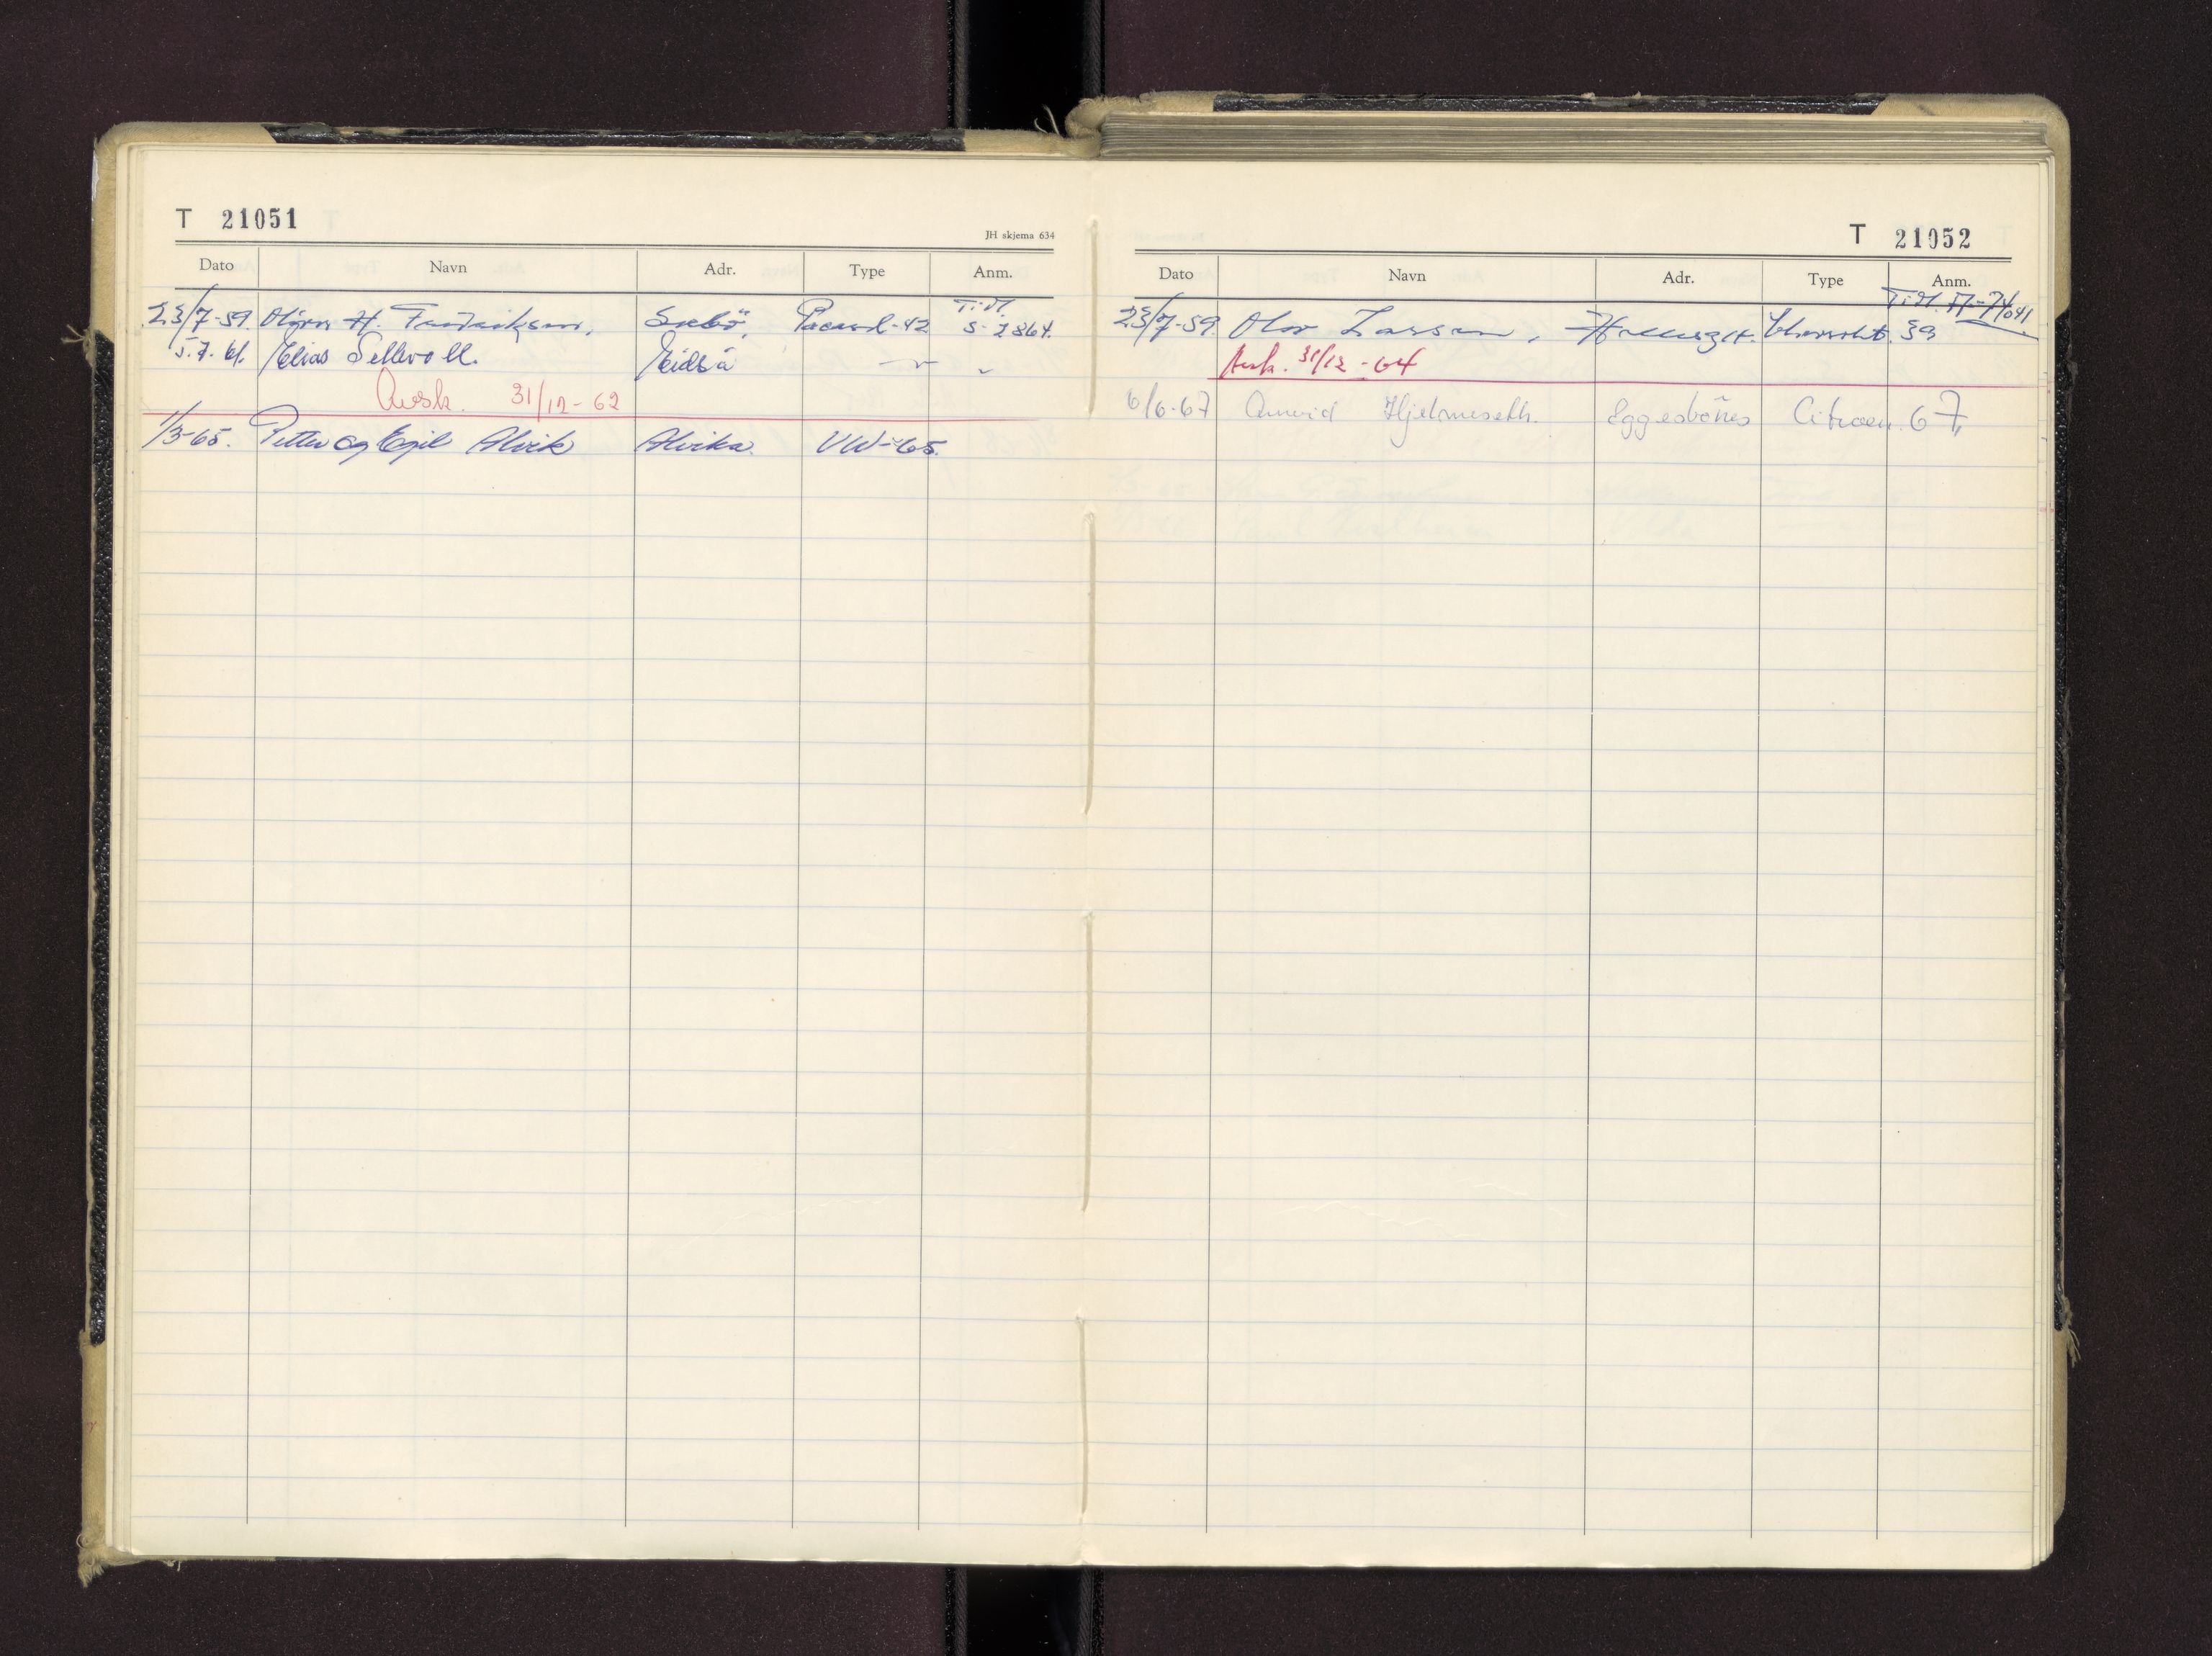 T 21051
JH skjema 634
Dato Navn Adr. Type Anm.
23/7-59. H. Fredriksen, Sæbö, Pacard-42 Tidl. S-7864.
5.7.61. Elias Sellevoll. Eidså
Avsk. 31/12-62
1/3-65. Petter og Egil Alvik Alvika. VW-65.
T 21052
Dato Navn Adr. Type Anm.
23/7-59. Olav Larsen, Chevrolet. 39 Tidl.
Avsk. 31/12-64
6/6-67 Hjelmeseth. Eggesbönes Citroen 67,